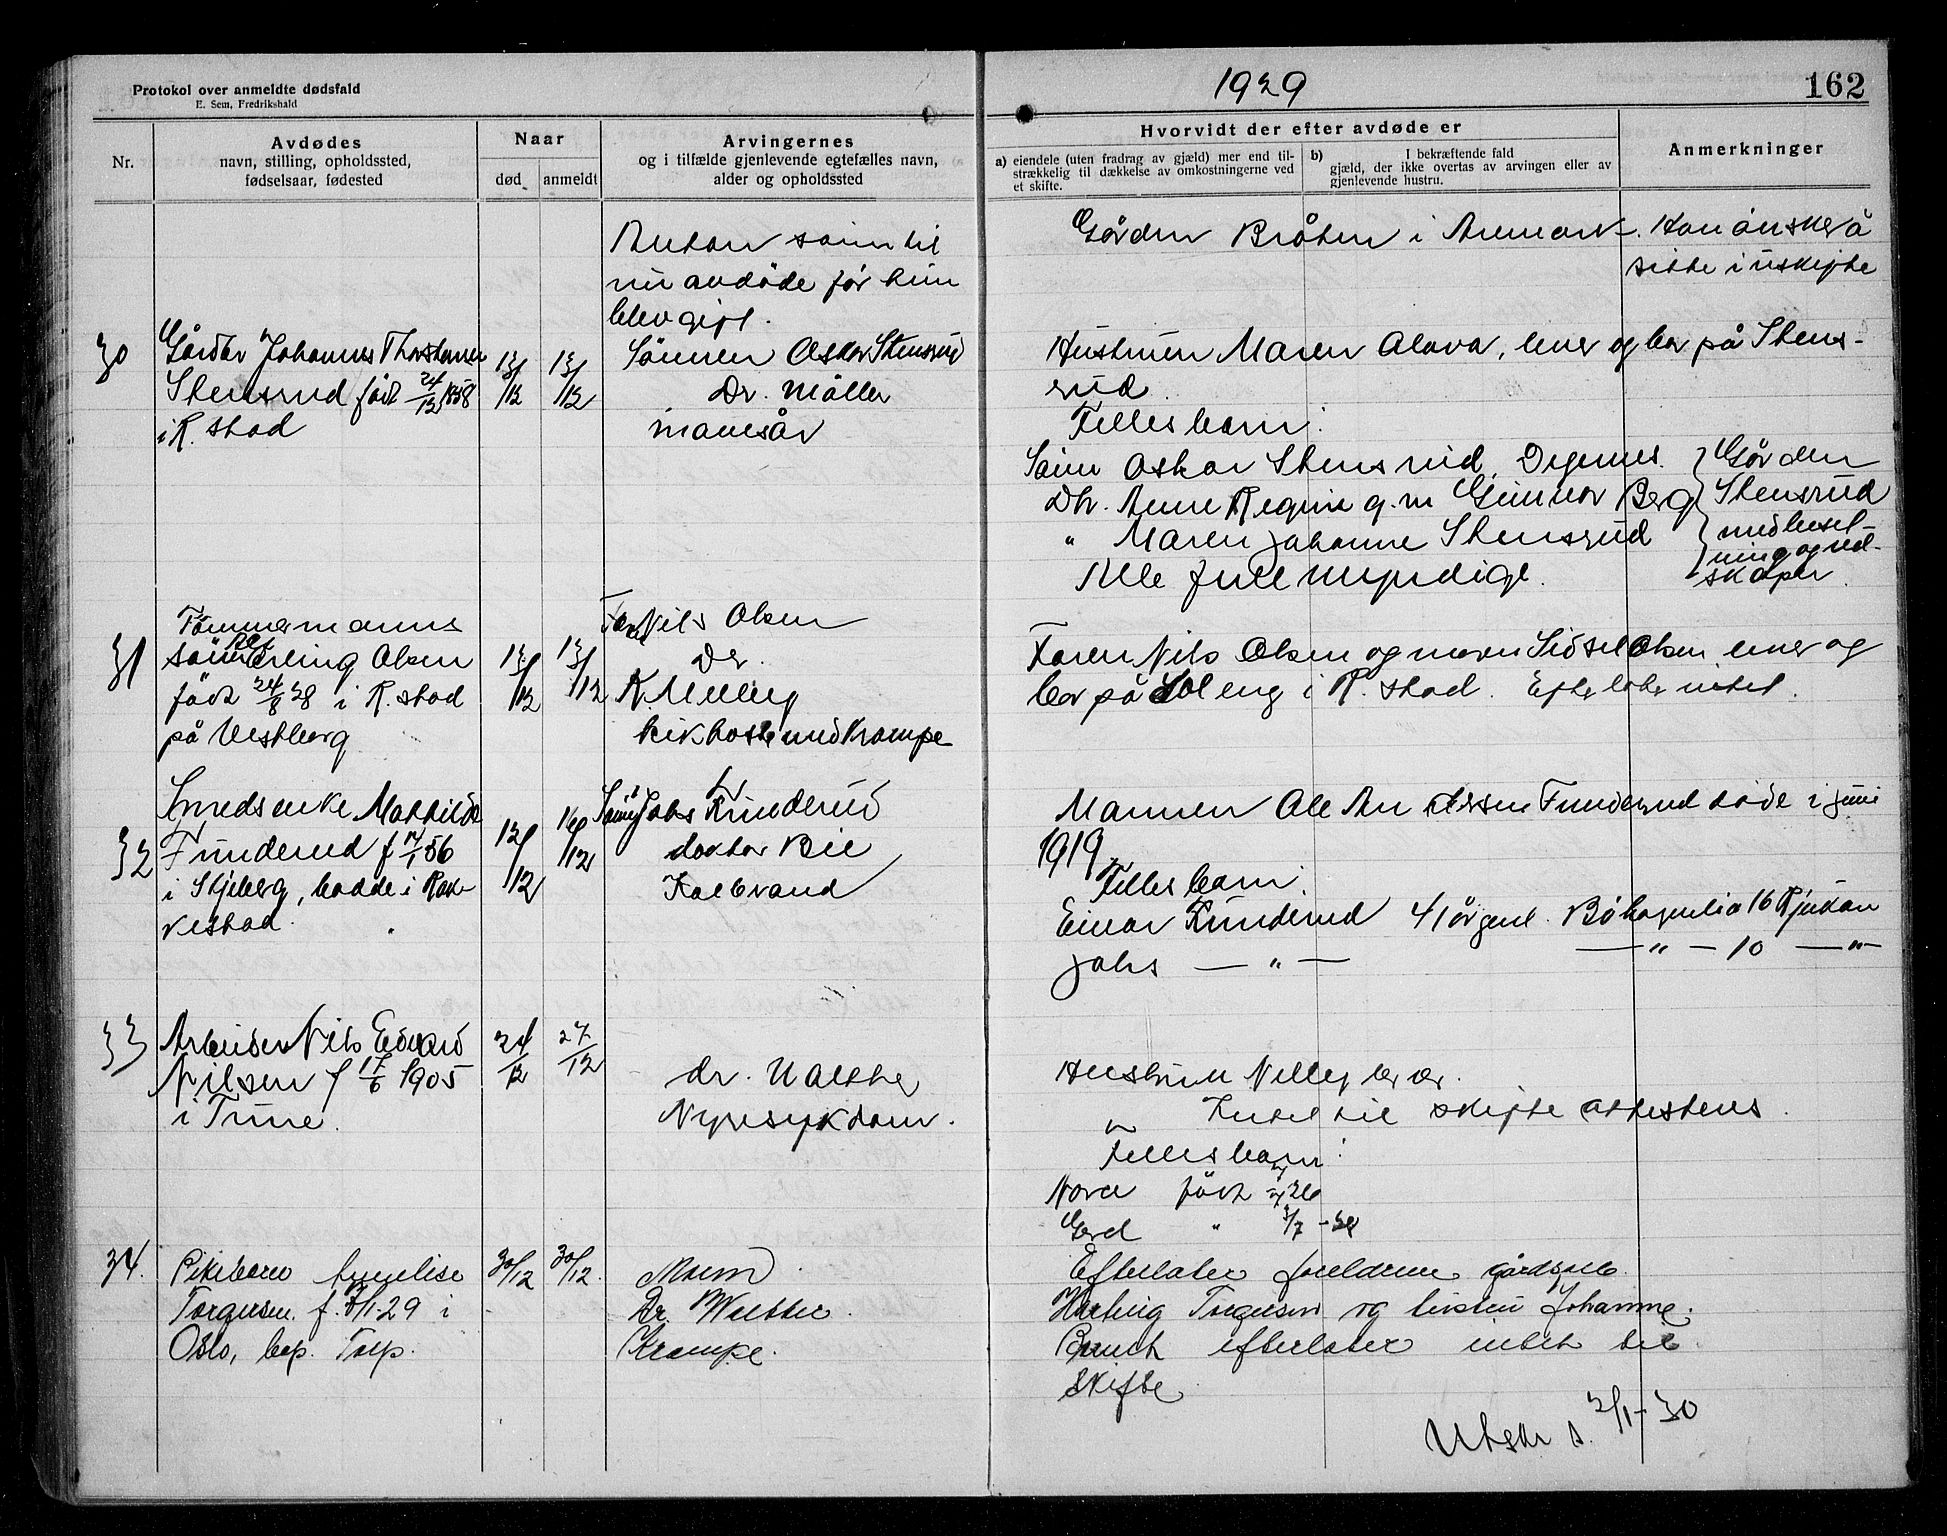 Protokol over anmeldte dødsfald
E. Sem, Fredrikshald
1929
162
Nr.
Avdødes
navn, stilling, opholdssted,
fødselsaar, fødested
Naar
død
anmeldt
Arvingernes
og i tilfælde gjenlevende egtefælles navn,
alder og opholdssted
Hvorvidt der efter avdøde er
a) eiendele (uten fradrag av gjæld) mer end til-
strækkelig til dækkelse av omkostningerne ved
et skifte.
b) I bekræftende fald
gjæld, der ikke overtas av arvingen eller av
gjenlevende hustru.
Anmerkninger
Anton sønn til
nu avdöde før hun
blev gift.
Gården Bråten i Aremark. Han önsker å
sitte i uskifte
30
Gårdbr Johannes Thorstensen
Stensrud født 24/12 1858
i R. stad
13/12
13/12
Sönnen Oskar Stensrud
Dr. Møller
mavesår
Hustruen Maren Olava, lever og bor på Stens-
rud
Fellesbarn:
Sönn Oskar Stensrud, Degernes.
Dtr. Anne Regine g. m Gunnar Berg
" Maren Johanne Stensrud
Alle fullmyndige.
Gården
Stensrud
med beset-
ning og red-
skaper.
31
Tömmermanns
sönn Erling Olsen
født 24/8 28 i R. stad
på Vestberg
13/12
13/12
Faren Nils Olsen
Dr.
K. Melley
kikhoste med krampe
Faren Nils Olsen og moren Sidsel Olsen lever og
bor på Soleng i R. stad. Efterlater intet.
32
Smedsenke Mathilde
Funderud f 17/1 56
i Skjeberg, bodde i Rak-
kestad.
12/12
16/12
Sönn Johs Funderud
doktor Bie
Koldbrand
Mannen Ole Andersen Funderud døde i juni
1919.
Fellesbarn:
Einar Funderud 41 år gml. Bökagenlia 16 Rjukan
Johs — " — — " — 10 — " —
33
Arbeider Nils Edvard
Nilsen f 17/6 1905
i Tune.
24/12
27/12
dr. Walther
Nyresykdom.
Hustruen Nelley lever.
Intet til skifte attesteres.
Fellesbarn:
Nora født 26
Gerd " 3/7 -
34.
Pikebarn Annelise
Torgersen f. /1-29 i
Oslo, bop. Torp.
30/12
30/12
Moren
Dr. Walther.
Krampe.
Efterlater foreldrene gårdsarb.
Hartvig Torgersen og hustru Johanne.
efterlater intet til
skifte
Utskr s. 2/1-30